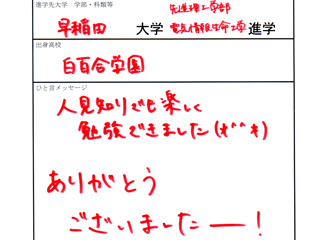 進学先大学 学部・科類等
先進理工学部
早稲田 大学 電気情報生命工学 進学
出身高校
白百合学園
ひと言メッセージ
人見知りでも楽しく
勉強できました(*^^*)
ありがとう
ございましたー!